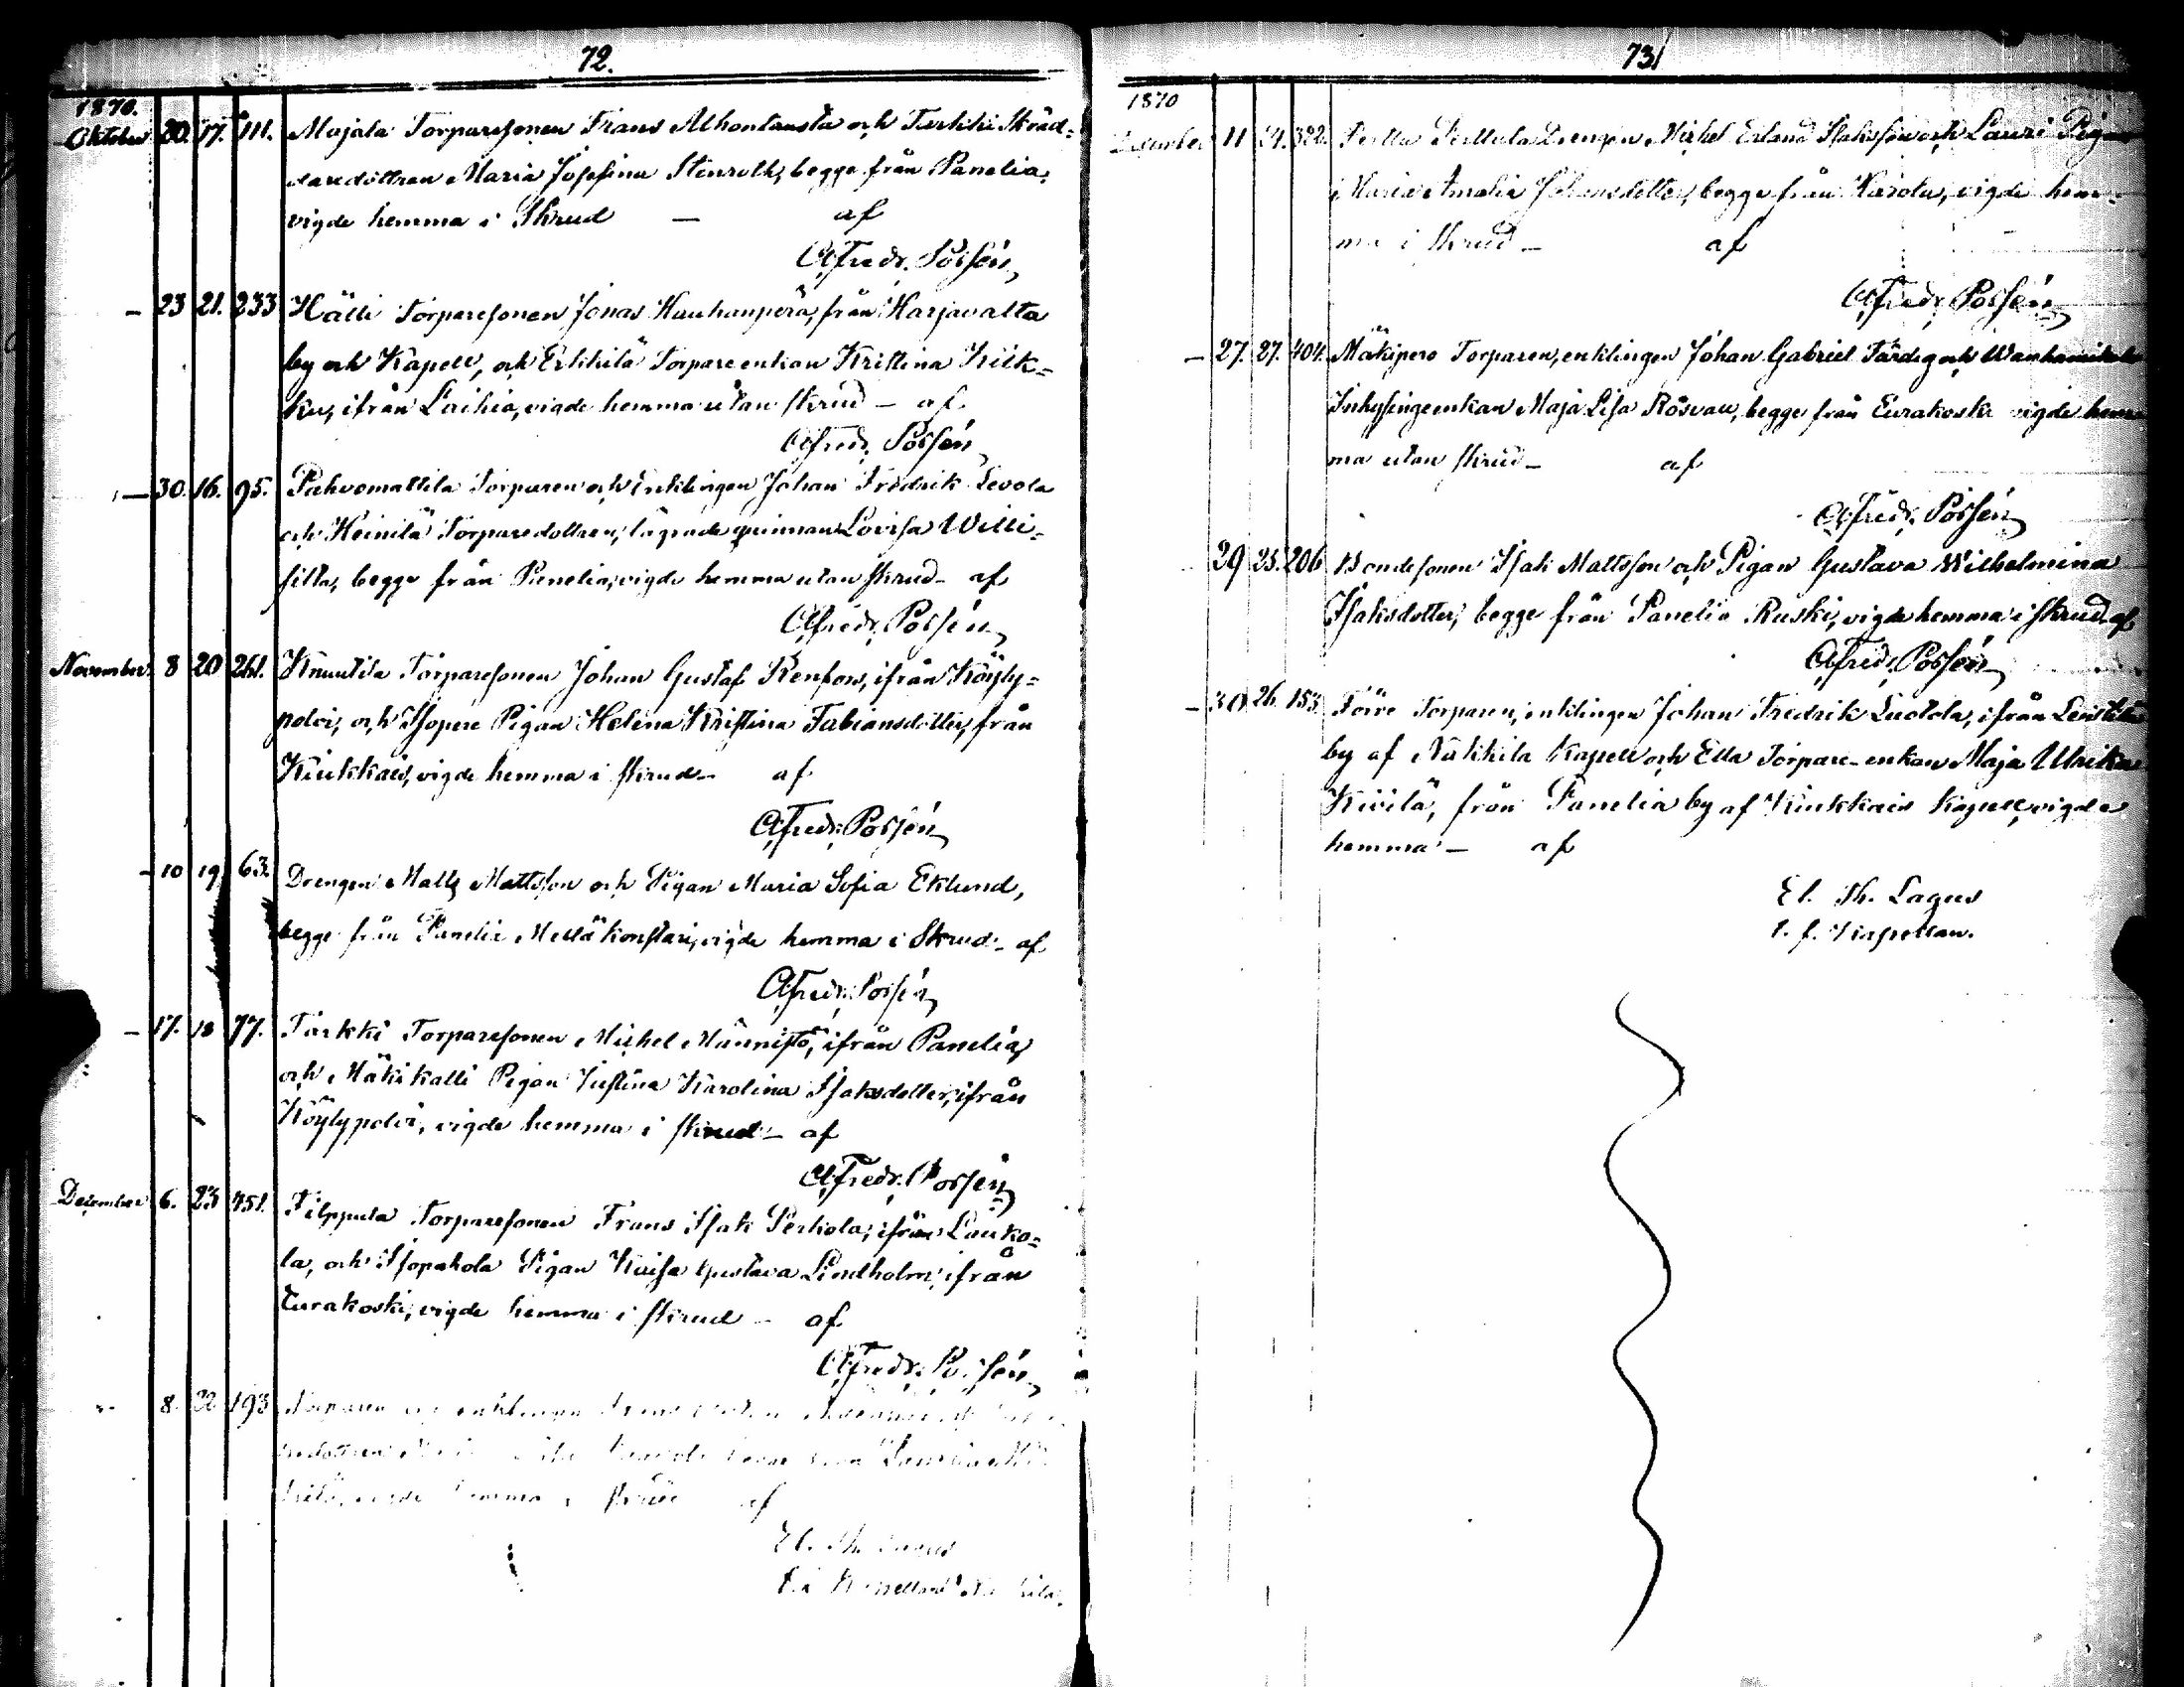 72.
1870.
Oktober 20. 17. 111. Majala Torparesonen Frans Alhontausta och Turkki Skräd=
daredottren Maria Josefina Stenroth, begge från Panelia,
vigde hemma i Skrud — af
Alfredr. Possén
— 23 21. 233 Hälli Torparesonen Jonas Hauhanperä, från Harjavalta
by och Kapell, och Erkkilä Torpareenkan Kristina Kilk=
ku, ifrån Laihia, vigde hemma utan skrud — af
Alfredr. Possén
— 30. 16. 95. Pahvomattila Torparen och Enklingen Johan Fredrik Levola
och Heinilä Torparedottren, lägrade quinnan Lovisa Willi=
silla, begge från Panelia, vigde hemma utan skrud — af
Alfredr. Possén
November 8 20 261. Knuutila Torparesonen Johan Gustaf Renfors, ifrån Köyly=
polvi, och Isopere Pigan Helena Kristina Fabiansdotter, från
Kiukkais, vigde hemma i skrud — af
Alfredr. Possén
— 10 19 63. Drengen Matts Mattsson och Pigan Maria Sofia Eklund,
begge från Panelia Mellä konstari, vigde hemma i Skrud — af
Alfredr. Possén
— 17. 18 77. Tarkki Torparesonen Michel Männistö, ifrån Panelia,
och Mäkikalli Pigan Justina Karolina Isaksdotter, ifrån
Köylypolvi, vigde hemma i skrud — af
Alfredr. Possén
December 6. 23 451. Filppula Torparesonen Frans Isak Perkola, ifrån Lauko=
la, och Isopahola Pigan Kaisa Gustava Lindholm, ifrån
Eurakoski, vigde hemma i skrud — af
Alfredr. Possén
8. 22 193 Torparen och enklingen Frans
hemma i skrud af
El. Th. Lagus
73
1870
December 11 24. 322. Perttula Drengen Michel Erland Isaksson och Lauri Pigan
Maria Amalia Johansdotter, begge från Harola, vigde hem=
ma i skrud — af
Alfredr. Possén
— 27. 27. 404. Mäkipere Torparen, enklingen Johan Gabriel Färdig och
Inhysingeenkan Maja Lisa Rosvau, begge från Eurakoski vigde hem=
ma utan skrud — af
Alfredr. Possén
29 25. 206 Bondesonen Isak Mattsson och Pigan Gustava Wilhelmina
Isaksdotter, begge från Panelia Ruski, vigde hemma i skrud af
Alfredr. Possén
— 30 26. 153. Törre Torparen, enklingen Johan Fredrik Luotola, ifrån
by af Nakkila Kapell och Ella Torpare-enkan Maja Ulrika
Kivilä, från Panelia by af Kiukkais Kapell, vigde
hemma — af
El. Th. Lagus
t. f. Kapellan.